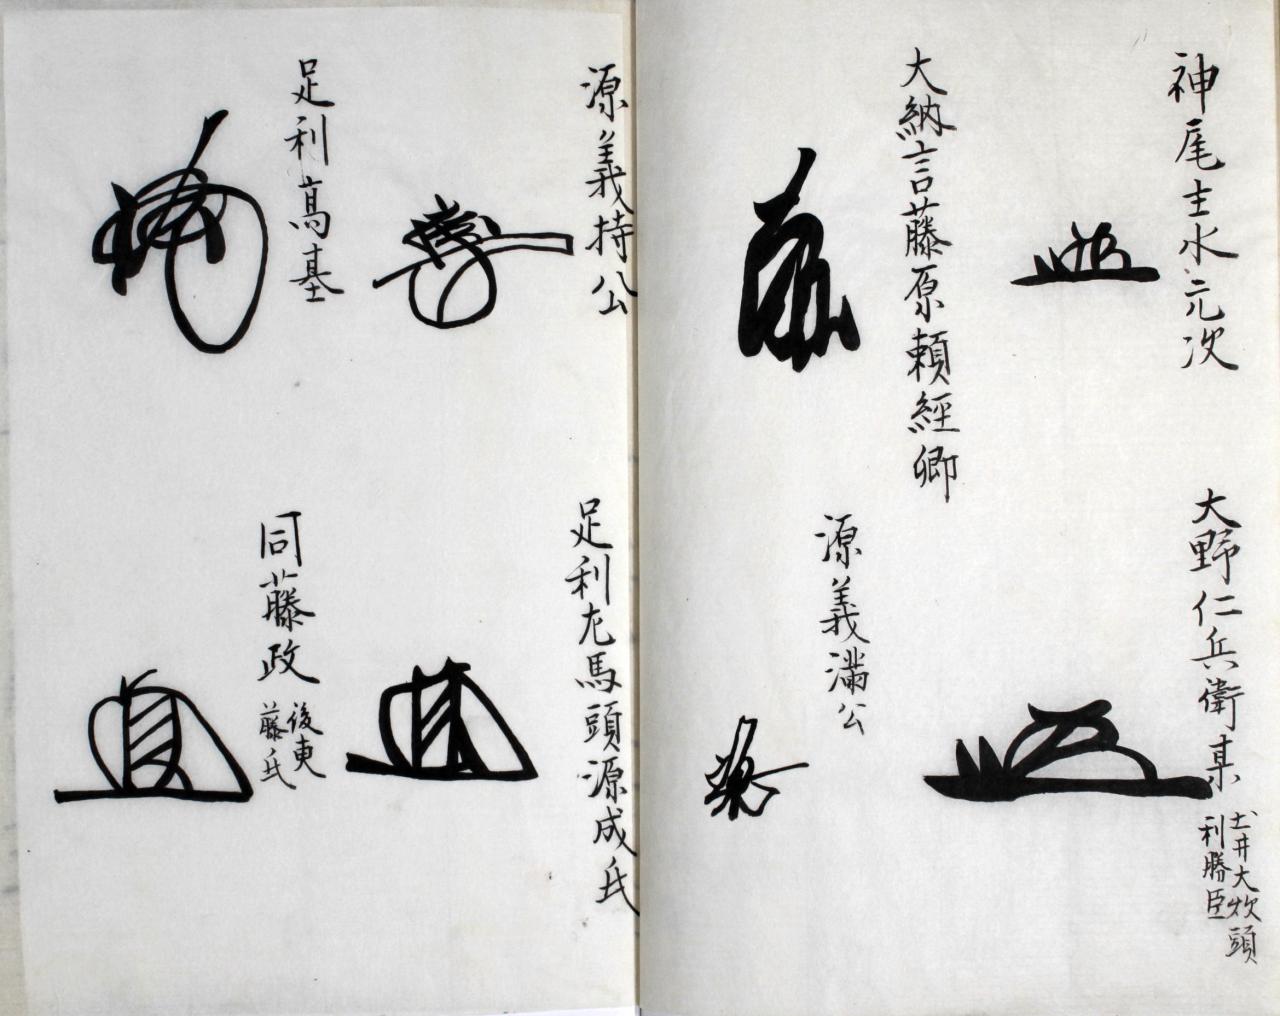 神尾主水元次
大野仁兵衛某
土井大炊頭
利勝臣
大納言藤原頼經卿
源義滿公
源義持公
足利左馬頭源成氏
足利高基
同藤政
後東
藤氏